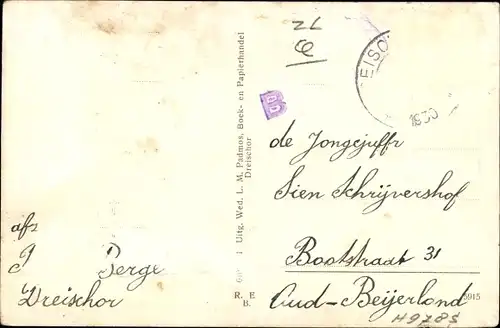 afz
J Berge
Dreischor
Uitg. Wed. L. M. Padmos, Boek- en Papierhandel
Dreischor
R. E
B.
5915
EISC
1950
de Jongejuffr
Sien Schrijvershof
Bootstraat 31
Oud-Beijerland
H9785